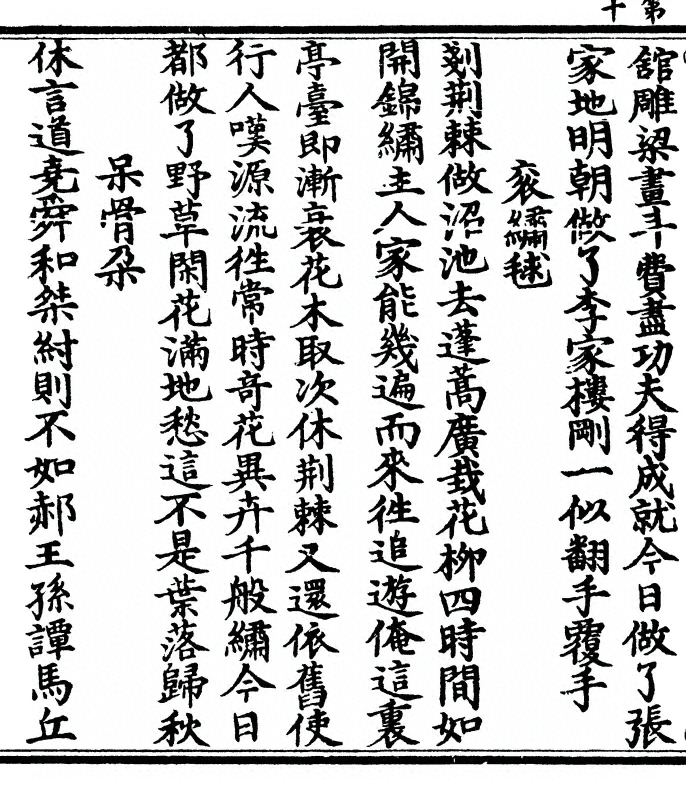 第十
舘雕梁畫斗費盡功夫得成就今日做了張
家地明朝做了李家樓剛一似翻手覆手
衮繡毬
剗荆棘做沼池去蓬蒿廣栽花柳四時間如
開錦繡主人家能幾遍而來徃追遊俺這裏
亭臺即漸衰花木取次休荆棘又還依舊使
行人嘆源流徃常時竒花異卉千般繡今日
都做了野草閑花滿地愁這不是葉落歸秋
呆骨朶
休言道堯舜和桀紂則不如郝王孫譚馬丘